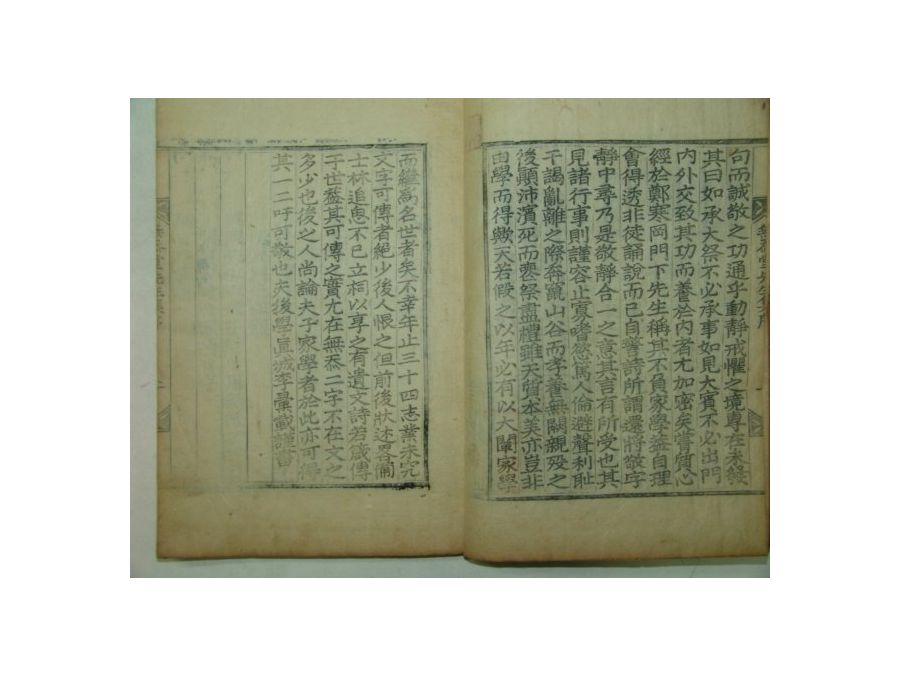 句而誠敬之功通乎動靜戒懼之境專在未發
其曰如承大祭不必承事如見大賓不必出門
內外交致其功而養於內者尤加密矣嘗質心
經於鄭寒岡門下先生稱其不負家學益自理
會得透非徒誦說而已自警詩所謂還將敬字
靜中尋乃是敬靜合一之意其言有所受也其
見諸行事則謹容止寡嗜慾篤人倫避聲利恥
干謁亂離之際奔竄山谷而孝養無闕親歿之
後顚沛濱死而喪祭盡禮雖天質本美亦豈非
由學而得歟天若假之以年必有以大闡家學
而繼爲名世者矣不幸年止三十四志業未究
文字可傳者絶少後人恨之但前後狀述畧備
士林追思不已立祠以享之有遺文詩若箴傳
于世蓋其可傳之實尤在無忝二字不在文之
多少也後之人尚論夫子家學者於此亦可得
其一二吁可敬也夫後學眞城李彙載謹書